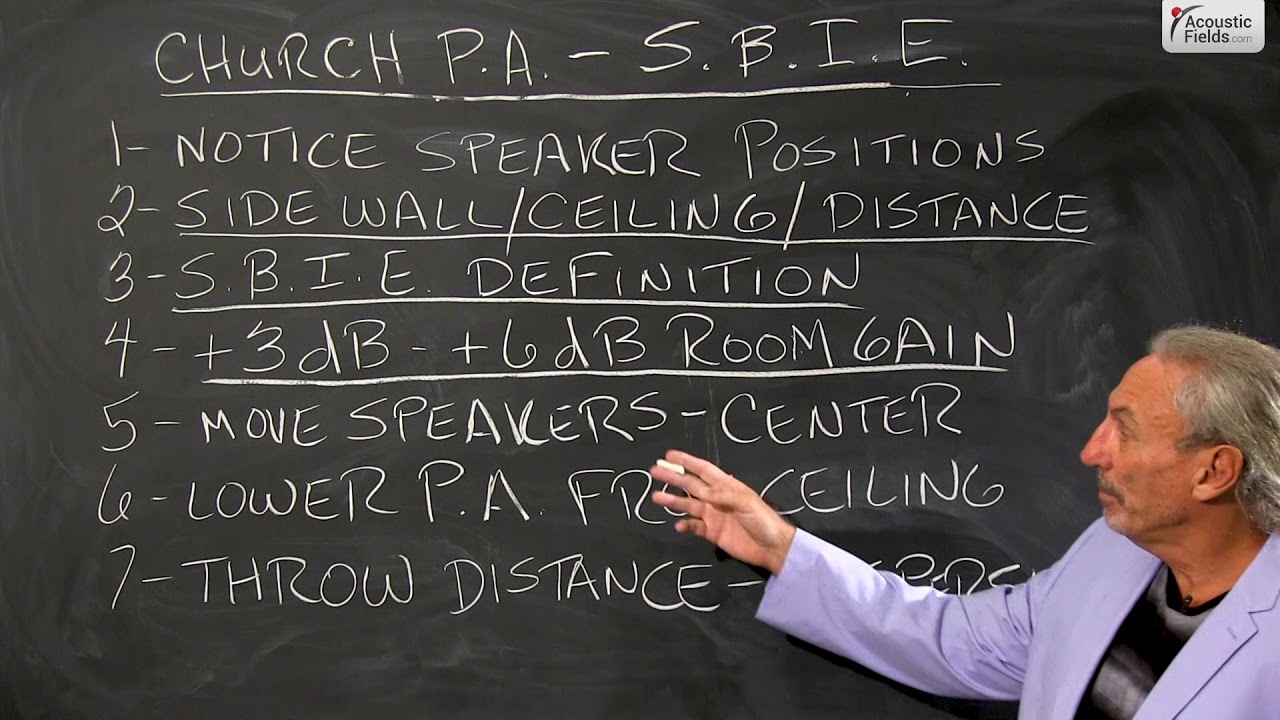 Acoustic
Fields.com
CHURCH P.A. - S.B.I.E.
1- NOTICE SPEAKER POSITIONS
2- SIDE WALL/CEILING/DISTANCE
3- S.B.I.E. DEFINITION
4- +3dB - +6dB ROOM GAIN
5- MOVE SPEAKERS - CENTER
6- LOWER P.A. CEILING
7- THROW DISTANCE -